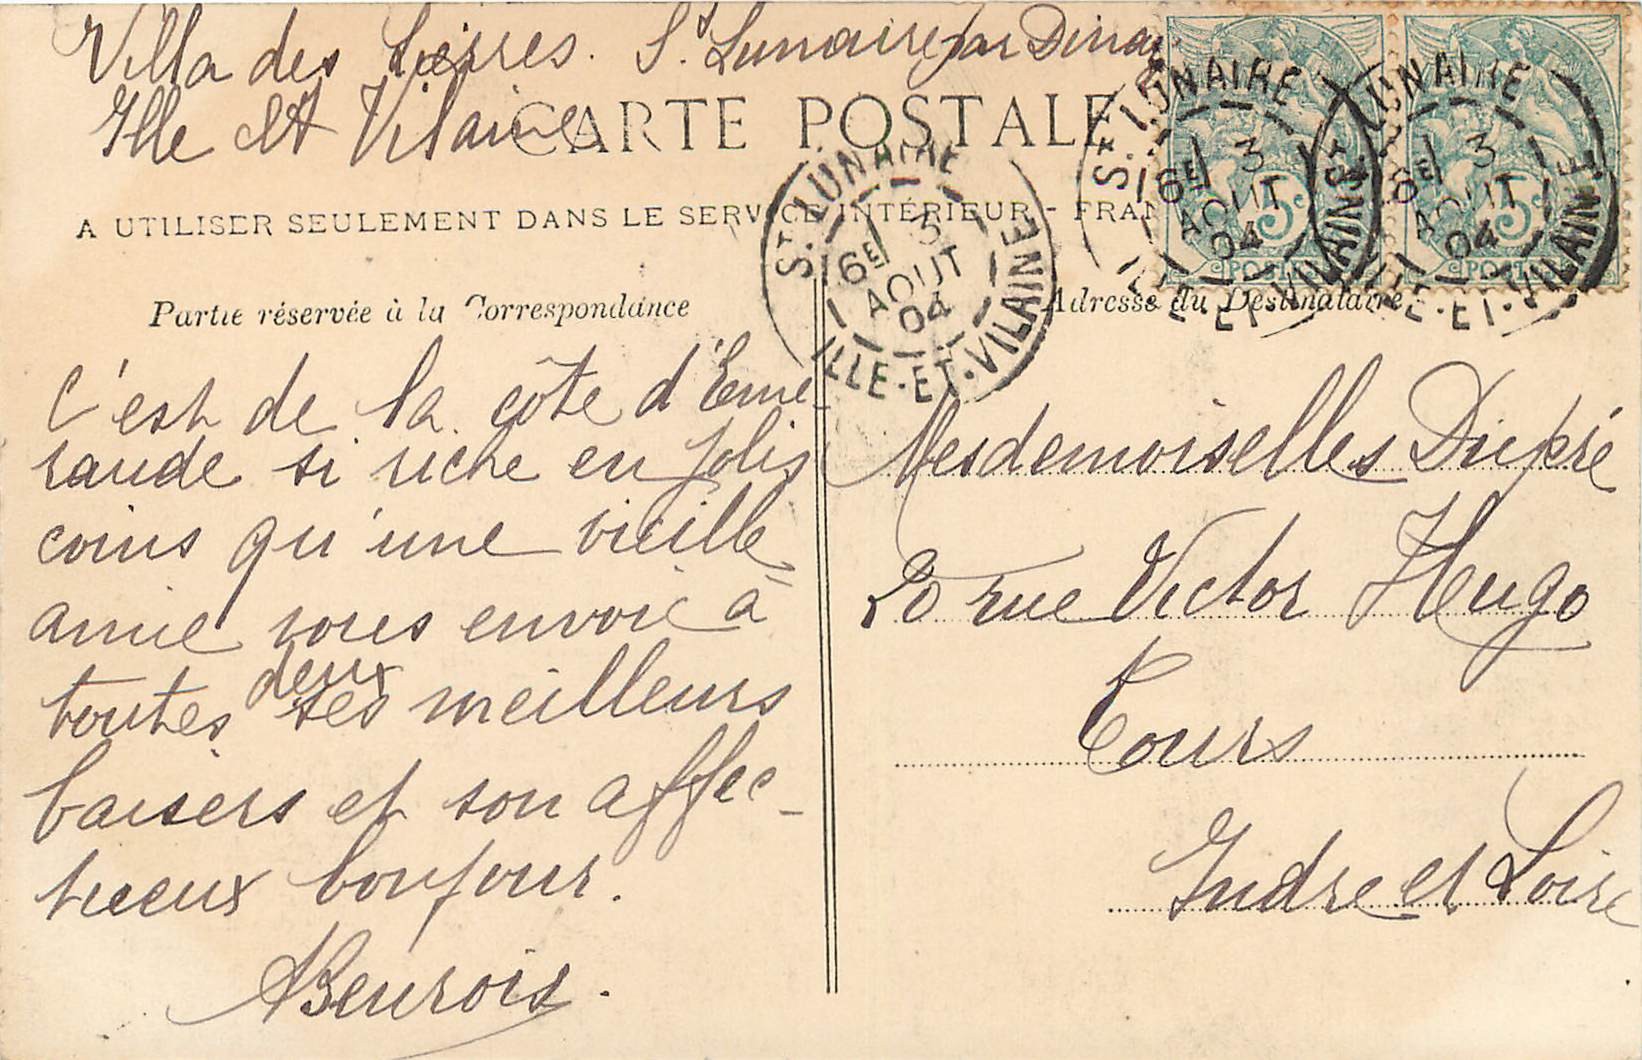 Villa des Lierres. St Lunaire par Dinar
Ille et Vilaine
CARTE POSTALE
A UTILISER SEULEMENT DANS LE SERVICE INTÉRIEUR - FRAN
Partie réservée à la Correspondance
Adresse du Destinataire
C'est de la côte d'Eme-
raude si riche en jolis
coins qu'une vieille
amie vous envoie à
toutes deux ses meilleurs
baisers et son affec-
tueux bonjour.
Mesdemoiselles Dupré
20 rue Victor Hugo
Tours
Indre et Loire
ST. LUNAIRE
6E 3
AOUT
04
ILLE-ET-VILAINE
ST. LUNAIRE
6E 3
AOUT
04
ILLE-ET-VILAINE
ST. LUNAIRE
6E 3
AOUT
04
ILLE-ET-VILAINE
5c
POSTES
5c
POSTES